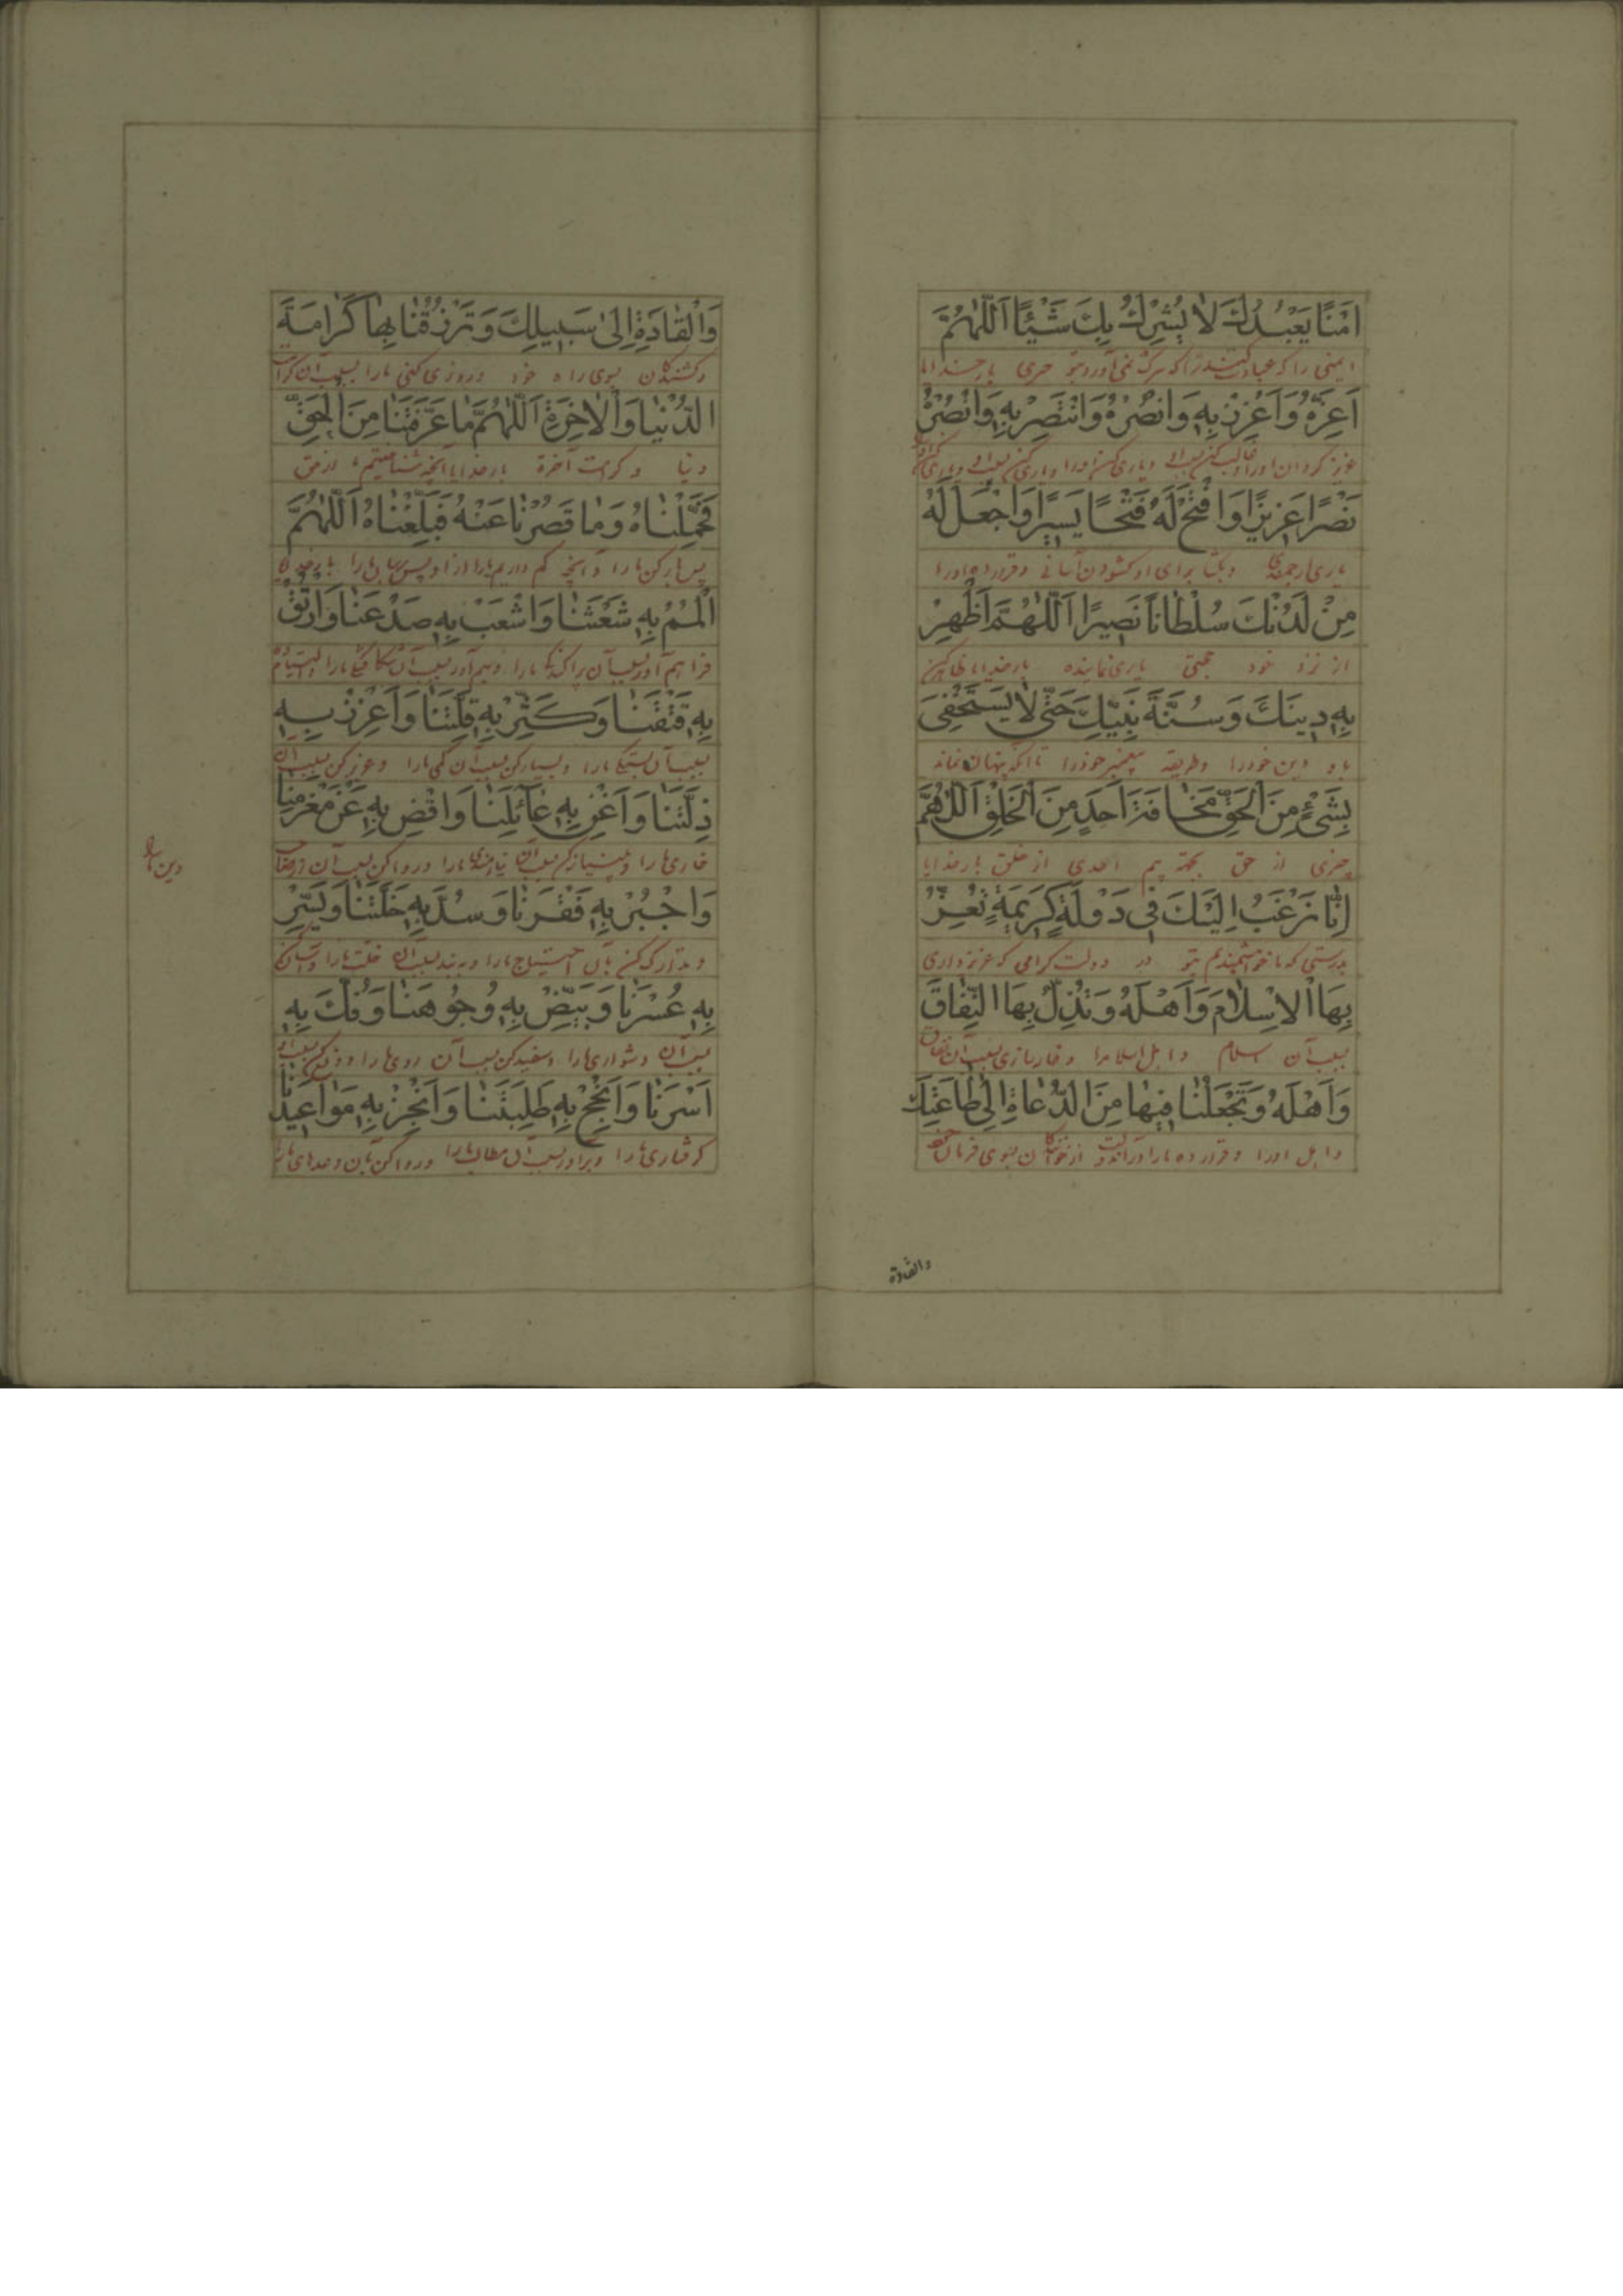 اٰمَنًا يَعْبُدُكَ لَا يُشْرِكُ بِكَ شَيْئًا اَللّٰهُمَّ
ایمنی را که عبادت کند ترا که شرک نمی آورد بتو چیزی بارخدایا
اَعِزَّهُ وَاَعْزِزْ بِهِ وَانْصُرْهُ وَانْتَصِرْ بِهِ وَانْصُرْهُ
عزیز گردان اورا و غالب کن باو و یاری کن اورا و یاری کن باو و یاری کن
نَصْرًا عَزِيزًا وَافْتَحْ لَهُ فَتْحًا يَسِيرًا وَاجْعَلْ لَهُ
یاری ارجمند و بگشا برای او گشودن آسانی و قرار ده اورا
مِنْ لَدُنْكَ سُلْطَانًا نَصِيرًا اَللّٰهُمَّ اَظْهِرْ
از نزد خود حجتی یاری نماینده بارخدایا ظاهر کن
بِهِ دِينَكَ وَسُنَّةَ نَبِيِّكَ حَتّٰى لَا يَسْتَخْفِىَ
باو دین خودرا و طریقه پیغمبر خودرا تا آنکه پنهان نماند
بِشَىْءٍ مِنَ الْحَقِّ مَخَافَةَ اَحَدٍ مِنَ الْخَلْقِ اَللّٰهُمَّ
چیزی از حق بجهة بیم احدی از خلق بارخدایا
اِنَّا نَرْغَبُ اِلَيْكَ فِى دَوْلَةٍ كَرِيمَةٍ تُعِزُّ
بدرستی که ما خواهشمندیم بتو در دولت گرامی که عزیز داری
بِهَا الْاِسْلَامَ وَاَهْلَهُ وَتُذِلُّ بِهَا النِّفَاقَ
بسبب آن اسلام و اهل اسلامرا و خوار سازی بسبب آن نفاق
وَاَهْلَهُ وَتَجْعَلُنَا فِيهَا مِنَ الدُّعَاةِ اِلٰى طَاعَتِكَ
و اهل اورا و قرار ده مارا در آن دولت از خوانندگان بسوی فرمان خود
والقادة
وَالْقَادَةِ اِلٰى سَبِيلِكَ وَتَرْزُقُنَا بِهَا كَرَامَةَ
و کشندگان بسوی راه خود و روزی کنی مارا بسبب آن کرامت
الدُّنْيَا وَالْاٰخِرَةِ اَللّٰهُمَّ مَا عَرَّفْتَنَا مِنَ الْحَقِّ
دنیا و کرامت آخرة بارخدایا آنچه شناختیم از حق
فَحَمِّلْنَاهُ وَمَا قَصُرْنَا عَنْهُ فَبَلِّغْنَاهُ اَللّٰهُمَّ
پس بار کن مارا و آنچه کم داریم ما از او پس برسان مارا بارخدایا
الْمُمْ بِهِ شَعَثَنَا وَاشْعَبْ بِهِ صَدْعَنَا وَارْتُقْ
فراهم آور بسبب آن پراکندگی مارا و بهم آور بسبب آن شکافتگی مارا و التیام ده
بِهِ فَتْقَنَا وَكَثِّرْ بِهِ قِلَّتَنَا وَاَعْزِزْ بِهِ
بسبب آن مارا و بسیار کن بسبب آن کمی مارا و عزیز کن بسبب آن
ذِلَّتَنَا وَاَغْنِ بِهِ عَائِلَنَا وَاقْضِ بِهِ عَنْ مَغْرَمِنَا
خاری مارا و بی نیاز کن بسبب آن نیازمندی مارا و روا کن بسبب آن از
دین مارا
وَاجْبُرْ بِهِ فَقْرَنَا وَسُدَّ بِهِ خَلَّتَنَا وَيَسِّرْ
و تدارک کن بآن احتیاج مارا و به بند بسبب آن خلت مارا و آسان کن
بِهِ عُسْرَنَا وَبَيِّضْ بِهِ وُجُوهَنَا وَفُكَّ بِهِ
بسبب آن دشواری مارا و سفید کن بسبب آن روی مارا و بسبب آن
اَسْرَنَا وَاَنْجِحْ بِهِ طَلِبَتَنَا وَاَنْجِزْ بِهِ مَوَاعِيدَنَا
گرفتاری مارا و برآور بسبب آن مطالب مارا و روا کن بآن وعدهای مارا